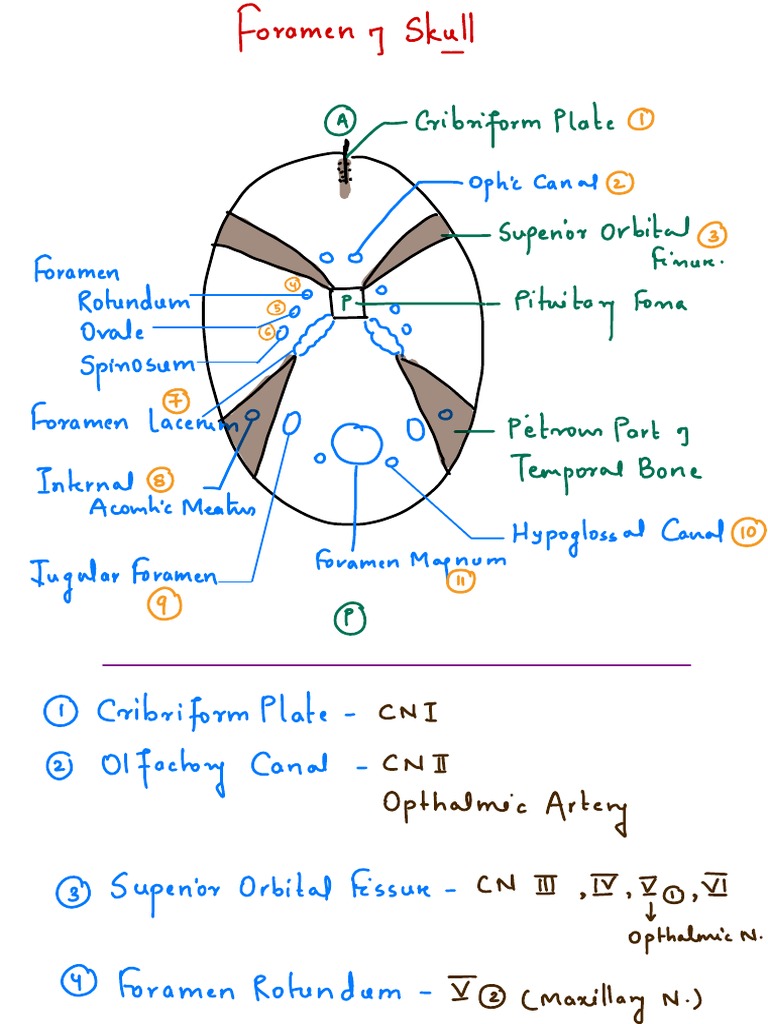 Foramen of Skull
A
Cribriform Plate 1
Ophic Canal 2
Superior Orbital 3
Fissure.
Foramen
Rotundum 4
Ovale 5
Spinosum 6
P
Pituitary Fossa
7
Foramen Lacerum
Petrous Part of
Temporal Bone
Internal 8
Acoustic Meatus
Hypoglossal Canal 10
Jugular Foramen
9
Foramen Magnum
11
P
1 Cribriform Plate - CN I
2 Olfactory Canal - CN II
Opthalmic Artery
3 Superior Orbital Fissure - CN III, IV, V1, VI
↓
Opthalmic N.
4 Foramen Rotundum - V2 (Maxillary N.)